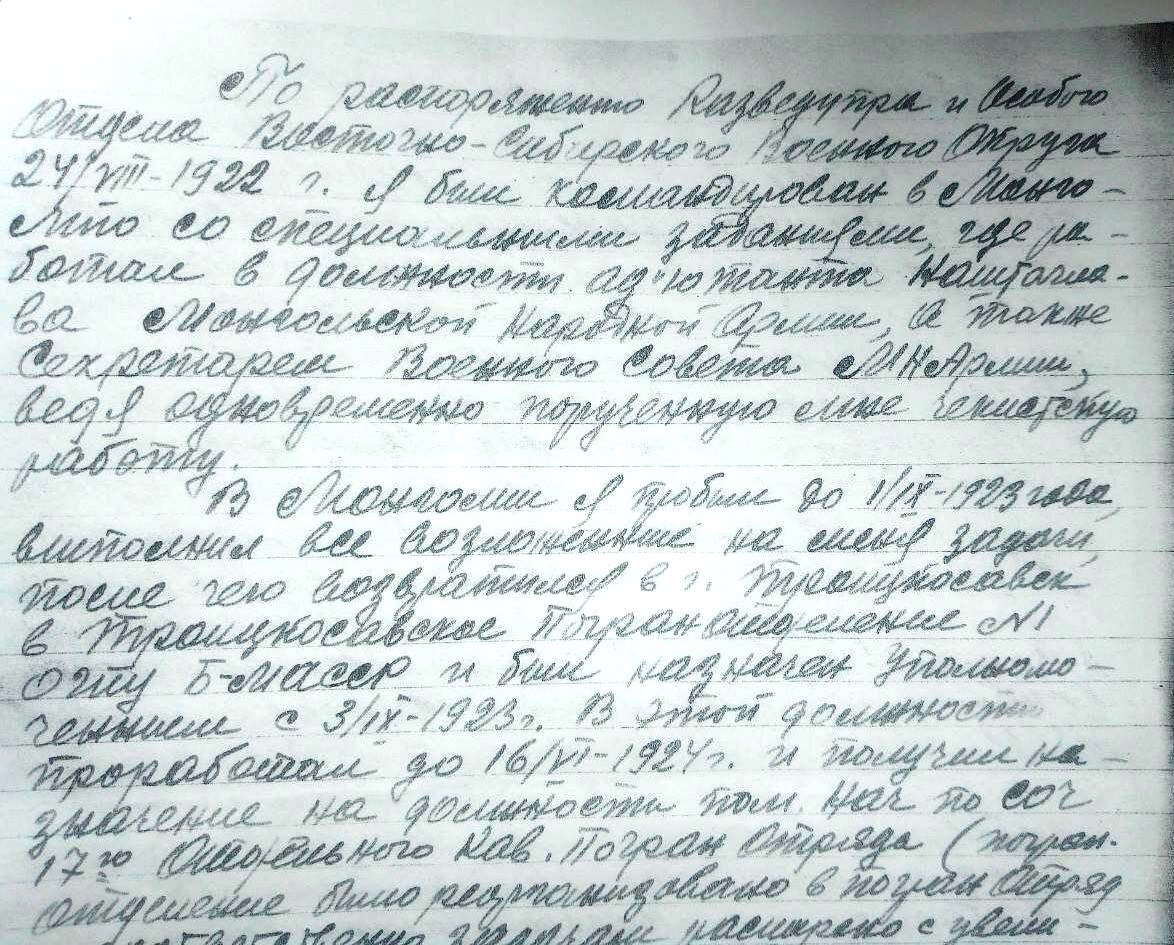 По распоряжению Разведупра и Особого
Отдела Восточно-Сибирского Военного Округа
24/VIII-1922 г. я был командирован в Монго-
лию со специальными заданиями, где ра-
ботал в должности ад"ютанта Наштагла-
ва Монгольской Народной Армии, а также
Секретарем Военного Совета МНАрмии,
ведя одновременно порученную мне чекистскую
работу.
В Монголии я пробыл до 1/IX-1923 года,
выполнил все возложенные на меня задачи,
после чего возвратился в г. Троицкосавск
в Троицкосавское Погранотделение №1
ОГПУ Б-МАССР и был назначен Уполномо-
ченным с 3/IX-1923г. В этой должности
проработал до 16/VI-1924г. и получил на-
значение на должность пом. нач по СОЧ
17го Отдельного Кав. Погран Отряда (погран.
отделение было реорганизовано в погран Отряд
задачам расширено с увели-